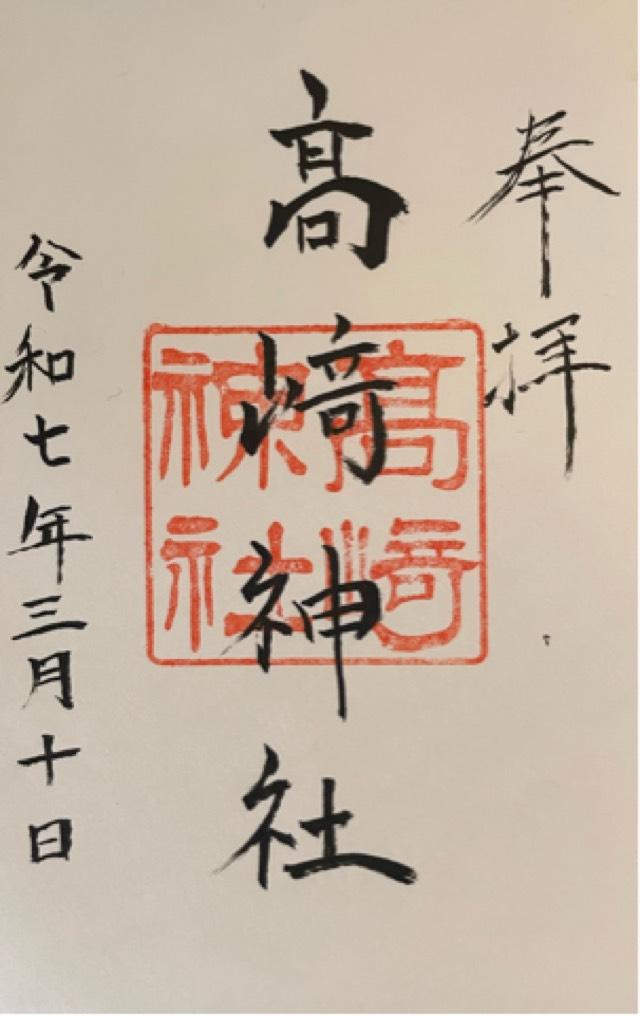 奉拝
高﨑神社
高﨑神社
令和七年三月十日